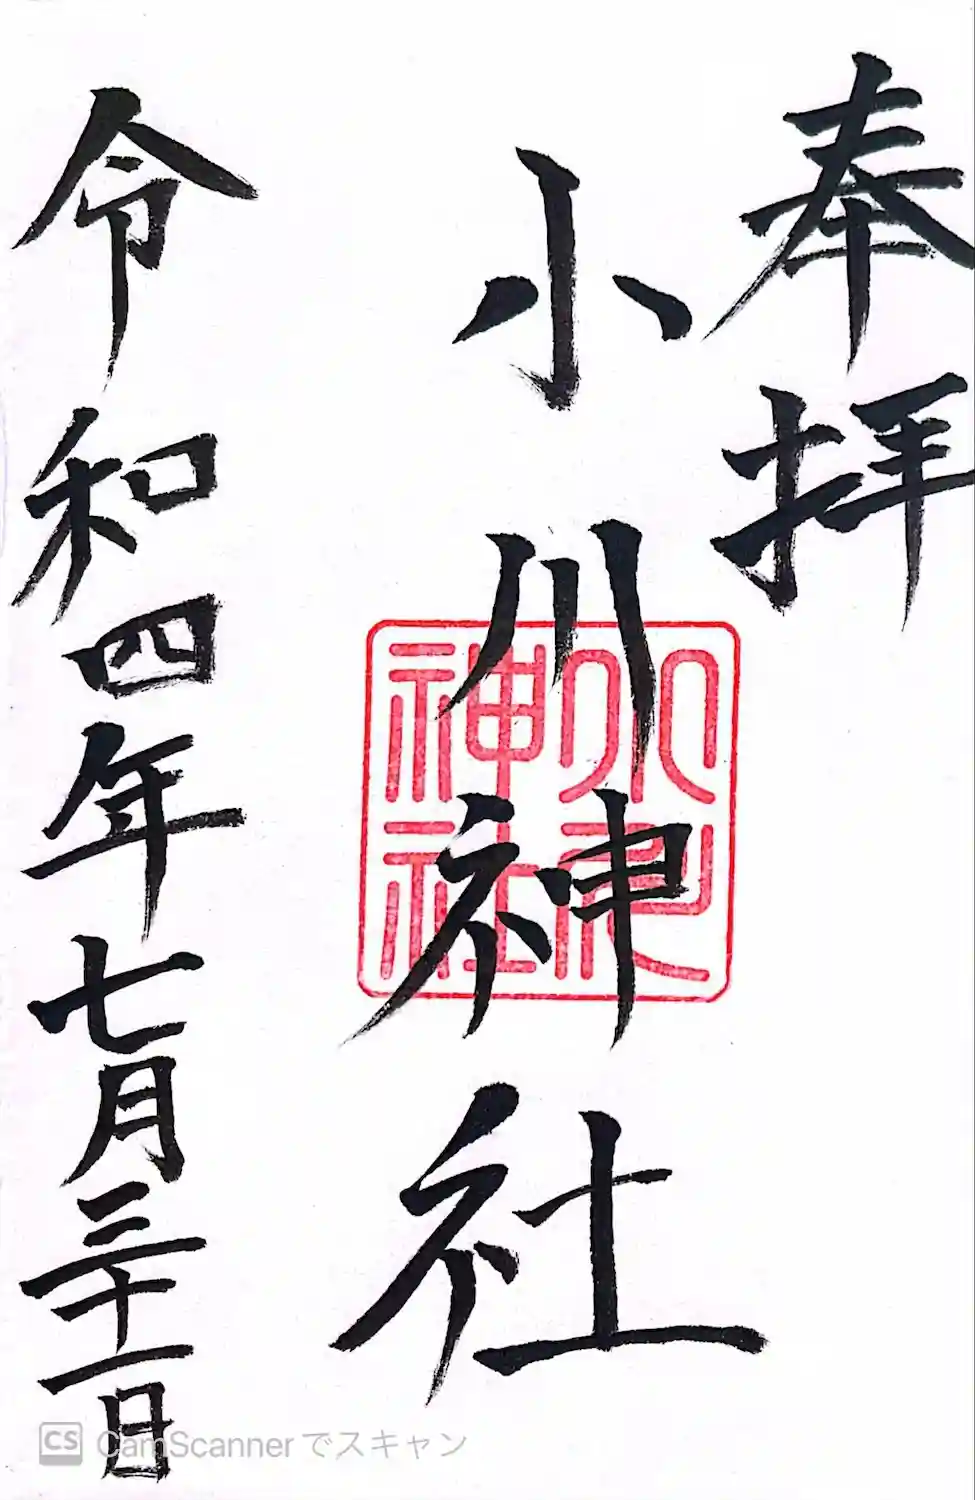 奉拝
小川神社
神社
令和四年七月三十一日
CS CamScannerでスキャン